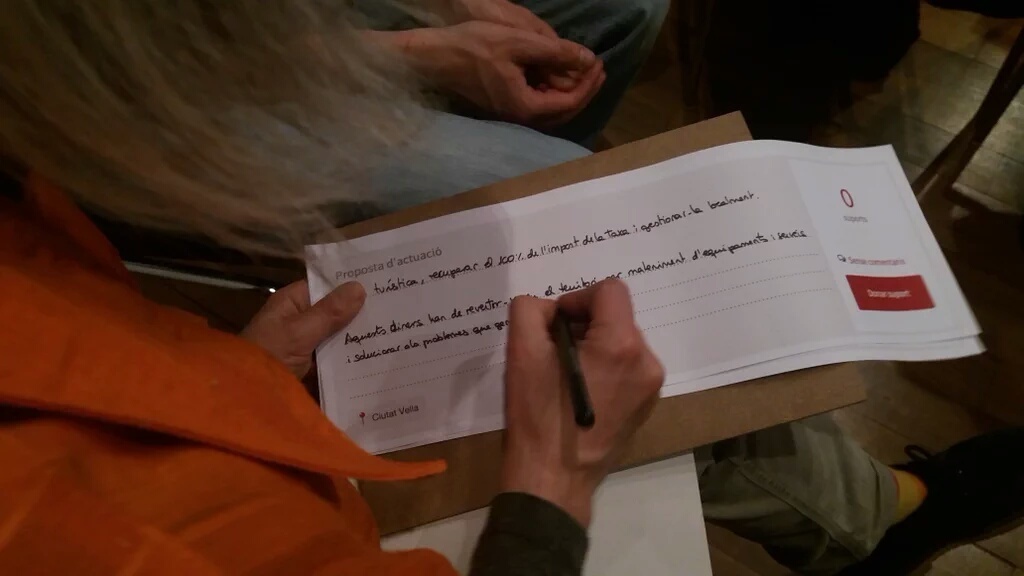 Proposta d'actuació
turística, recuperar el 100% de l'import de la Taxa i gestionar-la localment.
Aquests diners han de revertir el per manteniment d'equipaments i serveis
i solucionar els problemes que
Ciutat Vella
0
suports
Sense comentaris
Donar suport